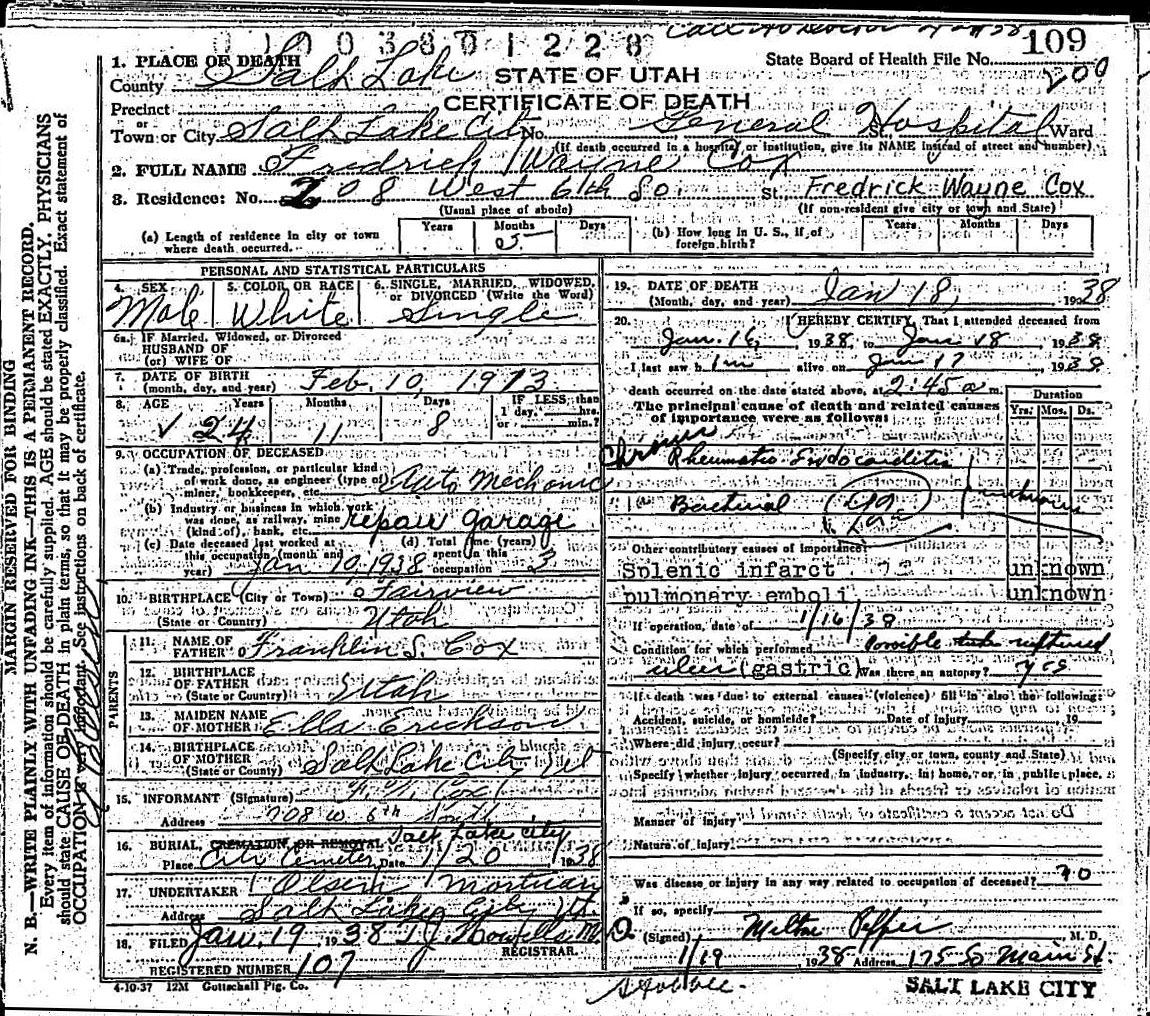 01003801228
109
State Board of Health File No.
200
1. PLACE OF DEATH
County Salt Lake
STATE OF UTAH
CERTIFICATE OF DEATH
Precinct
or
Town or City Salt Lake City No. General Hospital St. Ward
(If death occurred in a hospital or institution, give its NAME instead of street and number)
2. FULL NAME Fredrick Wayne Cox
3. Residence: No. 208 West 6th So. St. Fredrick Wayne Cox
(Usual place of abode) (If non-resident give city or town and State)
(a) Length of residence in city or town where death occurred. Years Months 5 Days
(b) How long in U. S., if of foreign birth? Years Months Days
PERSONAL AND STATISTICAL PARTICULARS
4. SEX Male
5. COLOR OR RACE White
6. SINGLE, MARRIED, WIDOWED, or DIVORCED (Write the Word) Single
6a. If Married, Widowed, or Divorced
HUSBAND OF
(or) WIFE OF
7. DATE OF BIRTH
(month, day, and year) Feb. 10, 1913
8. AGE Years Months Days IF LESS than
1 day, hrs.
or min.?
24 11 8
9. OCCUPATION OF DECEASED
(a) Trade, profession, or particular kind
of work done, as engineer (type of) Auto Mechanic
miner, bookkeeper, etc.
(b) Industry or business in which work
was done, as railway, mine repair garage
(kind of), bank, etc.
(c) Date deceased last worked at
this occupation (month and
year) Jan 10, 1938
(d) Total time (years)
spent in this
occupation 3
10. BIRTHPLACE (City or Town) Fairview
(State or Country) Utah
PARENTS
11. NAME OF
FATHER Franklin S. Cox
12. BIRTHPLACE
OF FATHER
(State or Country) Utah
13. MAIDEN NAME
OF MOTHER Ella Erickson
14. BIRTHPLACE
OF MOTHER
(State or Country) Salt Lake City Ut
15. INFORMANT (Signature) Cox
Address 708 W. 6th South
16. BURIAL, CREMATION, OR REMOVAL Salt Lake City
Place City Cemetery Date 1/20 1938
17. UNDERTAKER Olsen Mortuary
Address Salt Lake City Ut.
18. FILED Jan. 19 1938 T. J. Howells M.
REGISTRAR.
REGISTERED NUMBER 107
4-10-37 12M Gottschall Ptg. Co.
19. DATE OF DEATH
(Month, day, and year) Jan 18, 1938
20. I HEREBY CERTIFY, That I attended deceased from
Jan. 16, 1938, to Jan 18 1938
I last saw him alive on Jan 17, 1938
death occurred on the date stated above, at 2:45 a m.
The principal cause of death and related causes
of importance were as follows:
Duration
Yrs. Mos. Ds.
Chronic
Rheumatic Endocarditis
Bacterial unknown
Other contributory causes of importance:
Splenic infarct unknown
pulmonary emboli unknown
If operation, date of 1/16/38
Condition for which performed Possible ruptured
ulcer (gastric) Was there an autopsy? yes
If death was due to external causes (violence) fill in also the following:
Accident, suicide, or homicide? Date of injury 19
Where did injury occur?
(Specify city or town, county and State)
Specify whether injury occurred in industry, in home, or in public place.
Manner of injury
Nature of injury
Was disease or injury in any way related to occupation of deceased? no
If so, specify
(Signed) Milton Pepper M. D.
1/19 1938 Address 175 So Main St.
SALT LAKE CITY
MARGIN RESERVED FOR BINDING
N. B.—WRITE PLAINLY WITH UNFADING INK—THIS IS A PERMANENT RECORD.
Every item of information should be carefully supplied. AGE should be stated EXACTLY. PHYSICIANS
should state CAUSE OF DEATH in plain terms, so that it may be properly classified. Exact statement of
OCCUPATION is very important. See instructions on back of certificate.